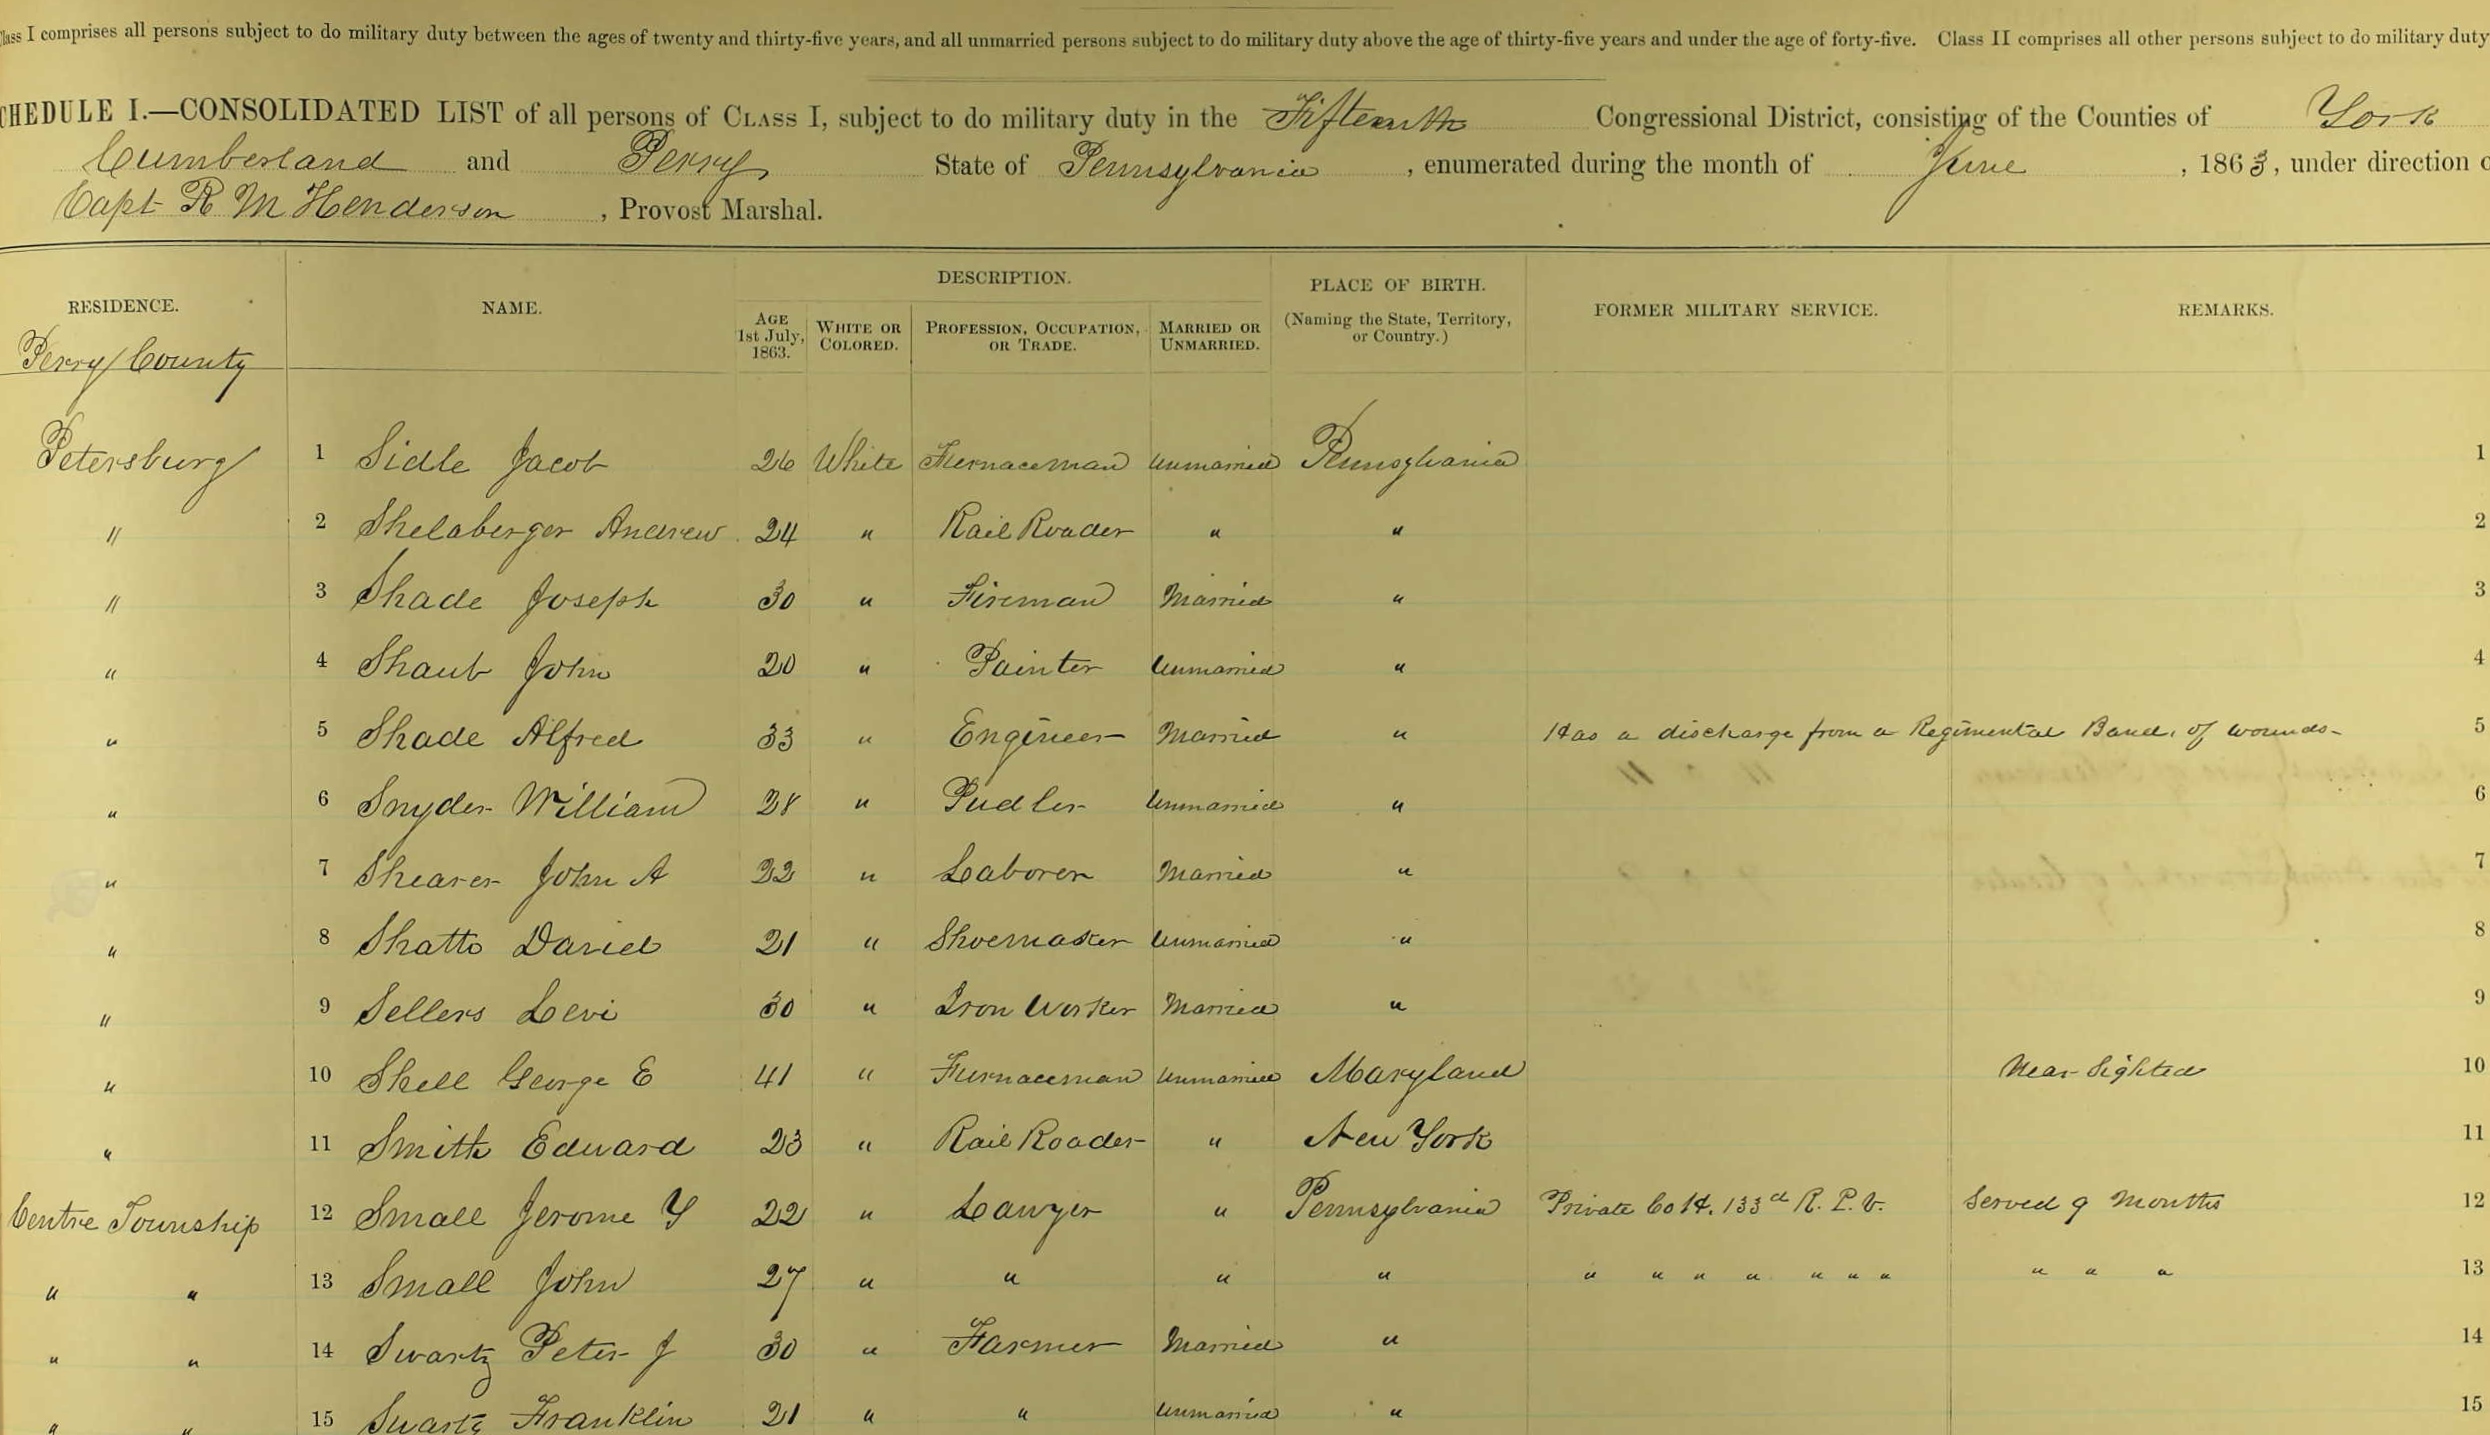 Class I comprises all persons subject to do military duty between the ages of twenty and thirty-five years, and all unmarried persons subject to do military duty above the age of thirty-five years and under the age of forty-five. Class II comprises all other persons subject to do military duty
CHEDULE I.—CONSOLIDATED LIST of all persons of CLASS I, subject to do military duty in the Fifteenth Congressional District, consisting of the Counties of York
Cumberland and Perry, State of Pennsylvania, enumerated during the month of June, 1863, under direction o
Capt R M Henderson, Provost Marshal.
RESIDENCE. NAME. DESCRIPTION. PLACE OF BIRTH. (Naming the State, Territory, or Country.) FORMER MILITARY SERVICE. REMARKS.
AGE 1st July, 1863. WHITE OR COLORED. PROFESSION, OCCUPATION, OR TRADE. MARRIED OR UNMARRIED.
Perry County
Petersburg 1 Sidle Jacob 26 White Furnaceman Unmarried Pennsylvania 1
" 2 Shelaberger Andrew 24 " Rail Roader " " 2
" 3 Shade Joseph 30 " Fireman Married " 3
" 4 Shaub John 20 " Painter Unmarried " 4
" 5 Shade Alfred 33 " Engineer Married " Has a discharge from a Regimental Band, of wounds- 5
" 6 Snyder William 28 " Pudler Unmarried " 6
" 7 Shearer John A 22 " Laborer Married " 7
" 8 Shatto David 21 " Shoemaker Unmarried " 8
" 9 Sellers Levi 30 " Iron Worker Married " 9
" 10 Shell George E 41 " Furnaceman Unmarried Maryland Near Sighted 10
" 11 Smith Edward 23 " Rail Roader " New York 11
Centre Township 12 Small Jerome Y 22 " Lawyer " Pennsylvania Private Co H. 133d R. P. V. Served 9 Months 12
" " 13 Small John 27 " " " " " " " " " " " " " " 13
" " 14 Swartz Peter J 30 " Farmer Married " 14
" " 15 Swartz Franklin 21 " " Unmarried " 15